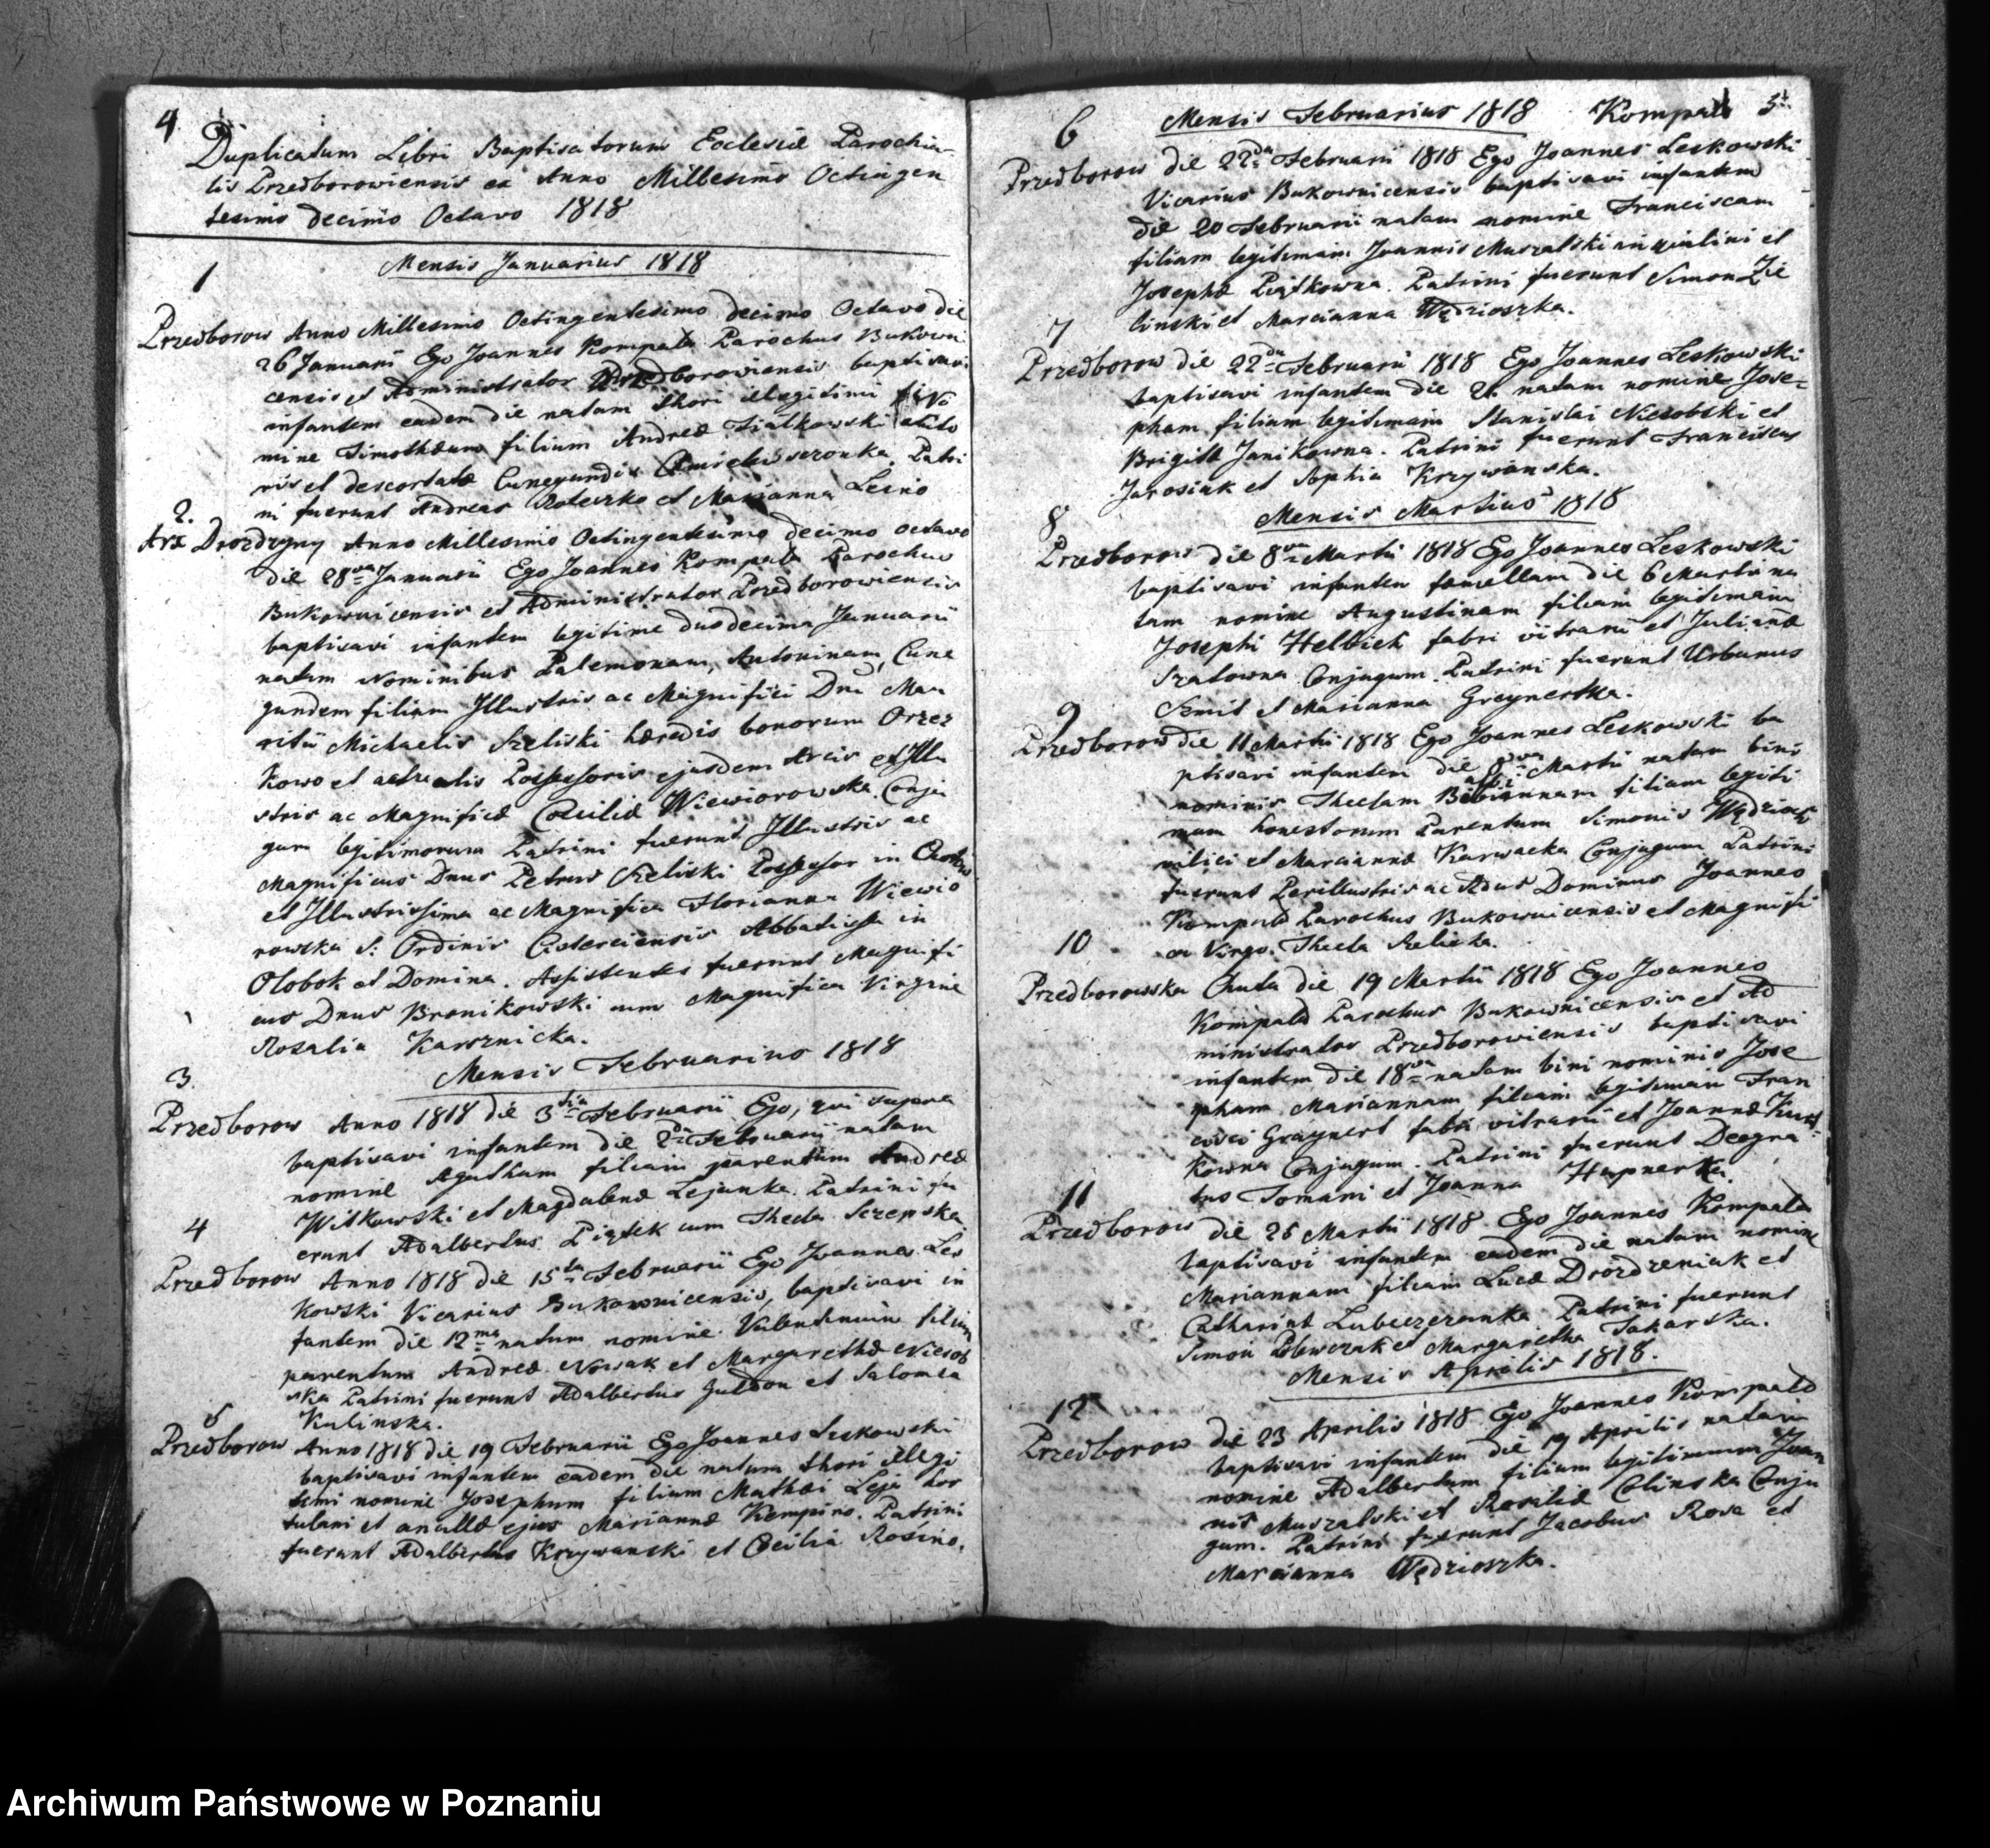 4
Duplicatum Libri Baptisatorum Ecclesiæ Parochia-
lis Przedborowiensis ex Anno Millesimo Octingen
tesimo decimo Octavo 1818
Mensis Januarius 1818
1
Przedborow Anno Millesimo Octingentesimo decimo Octavo die
26 Januarii Ego Joannes Kompałd Parochus Bukowni
censis et Administrator Przedborowiensis baptisavi
infantem eadem die natam thori illegitimi
mine Timothæum filium Andreæ Fiałkowski
et Cunegundis Patri
ni fuerunt Andreas et Marianna Lesno
2.
Arx Drozdzyny Anno Millesimo Octingentesimo decimo octavo
die 28va Januarii Ego Joannes Kompałd Parochus
Bukownicensis et Administrator Przedborowiensis
baptisavi infantem legitime duodecima Januarii
natam Nominibus Palemonam, Antoninam, Cune
gundem filiam Illustris ac Magnifici Dni Mau
ritii Michaelis Szeliski hæredis bonorum Orzez
kowo et actualis Possessoris ejusdem Arcis et Illu
stris ac Magnificæ Cæciliæ Wiewiorowska Conju
gum legitimorum Patrini fuerunt Illustris ac
Magnificus Dnus Petrus Szeliski Possessor in
et Illustrissima ac Magnifica Florianna Wiewio
rowska S: Ordinis Cisterciensis Abbatissa in
Ołobok et Domina. Assistentes fuerunt Magnifi
cus Dnus Bronikowski cum Magnifica Virgine
Rosalia Karsznicka.
Mensis Februarius 1818
3.
Przedborow Anno 1818 die 3tia Februarii Ego, qui supra
baptisavi infantem die 2da Februarii natam
nomine Agatham filiam parentum Andreæ
Witkowski et Magdalenæ Lejanka. Patrini fu
erunt Adalbertus Piątek cum Thecla Szczepska
4
Przedborow Anno 1818 die 15ta Februarii Ego Joannes Les
kowski Vicarius Bukownicensis, baptisavi in
fantem die 12ma natum nomine Valentinum filium
parentum Andreæ Nowak et Margarethæ Niesob
ska Patrini fuerunt Adalbertus Juldon et Salomea
Kulinska.
5
Przedborow Anno 1818 die 19 Februarii Ego Joannes Leskowski
baptisavi infantem eadem die natum thori illegi
timi nomine Josephum filium Mathæi Leja hor
tulani et ancillæ ejus Mariannæ Kempino. Patrini
fuerunt Adalbertus Krzywanski et Cecilia Rosino.
Mensis Februarius 1818 Kompałd 5
6
Przedborow die 22da Februarii 1818 Ego Joannes Leskowski
Vicarius Bukownicensis baptisavi infantem
die 20 Februarii natam nomine Franciscam
filiam legitimam Joannis Muszalski inquilini et
Josephæ Piątkowna. Patrini fuerunt Simon Zie
linski et Marcianna Wędzioszka.
7
Przedborow die 22da Februarii 1818 Ego Joannes Leskowski
baptisavi infantem die 21 natam nomine Jose-
pham filiam legitimam Stanislai Niesobski et
Brigittæ Janikowna. Patrini fuerunt Franciscus
Jarosiak et Sophia Krzywanska.
Mensis Martius 1818
8
Przedborow die 8va Martii 1818 Ego Joannes Leskowski
baptisavi infantem fæmellam die 6 Martii na
tam nomine Augustinam filiam legitimam
Josephi Helbich fabri vitrarii et Julianæ
Szatowna Conjugum. Patrini fuerunt Urbanus
Szmit et Marianna Greynertka.
9
Przedborow die 11 Martii 1818 Ego Joannes Leskowski ba
ptisavi infantem die 8va Martii natam bini
nominis Theclam Bibiannam filiam legiti
mam honestorum Parentum Simonis Wędzioch
vilici et Marciannæ Karwacka Conjugum Patrini
fuerunt Perillustris ac Rdus Dominus Joannes
Kompałd Parochus Bukownicensis et Magnifi
ca Virgo Thecla Szeliska.
10
Przedborowska Chuta die 19 Martii 1818 Ego Joannes
Kompałd Parochus Bukownicensis et Ad
ministrator Przedborowiensis baptisavi
infantem die 18va natam bini nominis Jose
pham Mariannam filiam legitimam Fran
cisci Graynert fabri vitrarii et Joannæ
kowna Conjugum. Patrini fuerunt Deogra
tus Tomani et Joanna Hepnerka.
11
Przedborow die 25 Martii 1818 Ego Joannes Kompałd
baptisavi infantem eadem die natam nomine
Mariannam filiam Lucæ Drozdzeniak et
Catharinæ Lubeczeranka Patrini fuerunt
Simon Olewczak et Margaretha Sakarska.
Mensis Aprilis 1818.
12
Przedborow die 23 Aprilis 1818 Ego Joannes Kompałd
baptisavi infantem die 19 Aprilis natum
nomine Adalbertum filium legitimum Joan
nis Muszalski et Rosaliæ Celinska Conju
gum. Patrini fuerunt Jacobus Rosa et
Marcianna Wędzioszka.
Archiwum Państwowe w Poznaniu